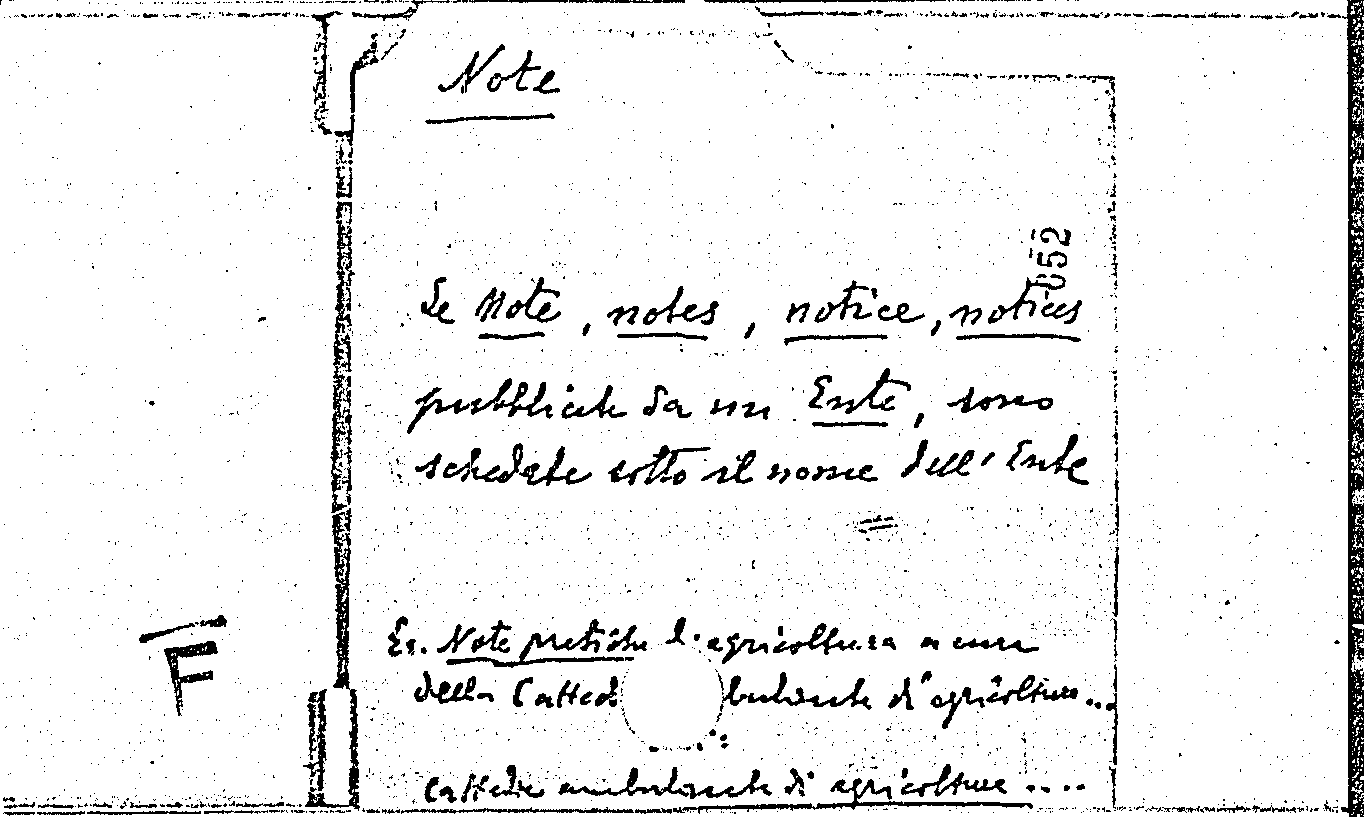 Note
652
Le Note, notes, notice, notices
pubblicate da un Ente, sono
schedate sotto il nome dell'Ente
Es. Note pratiche d'agricoltura a cura
della Catted bulante di agricoltura...
Cattedre ambulante di agricoltura....
F